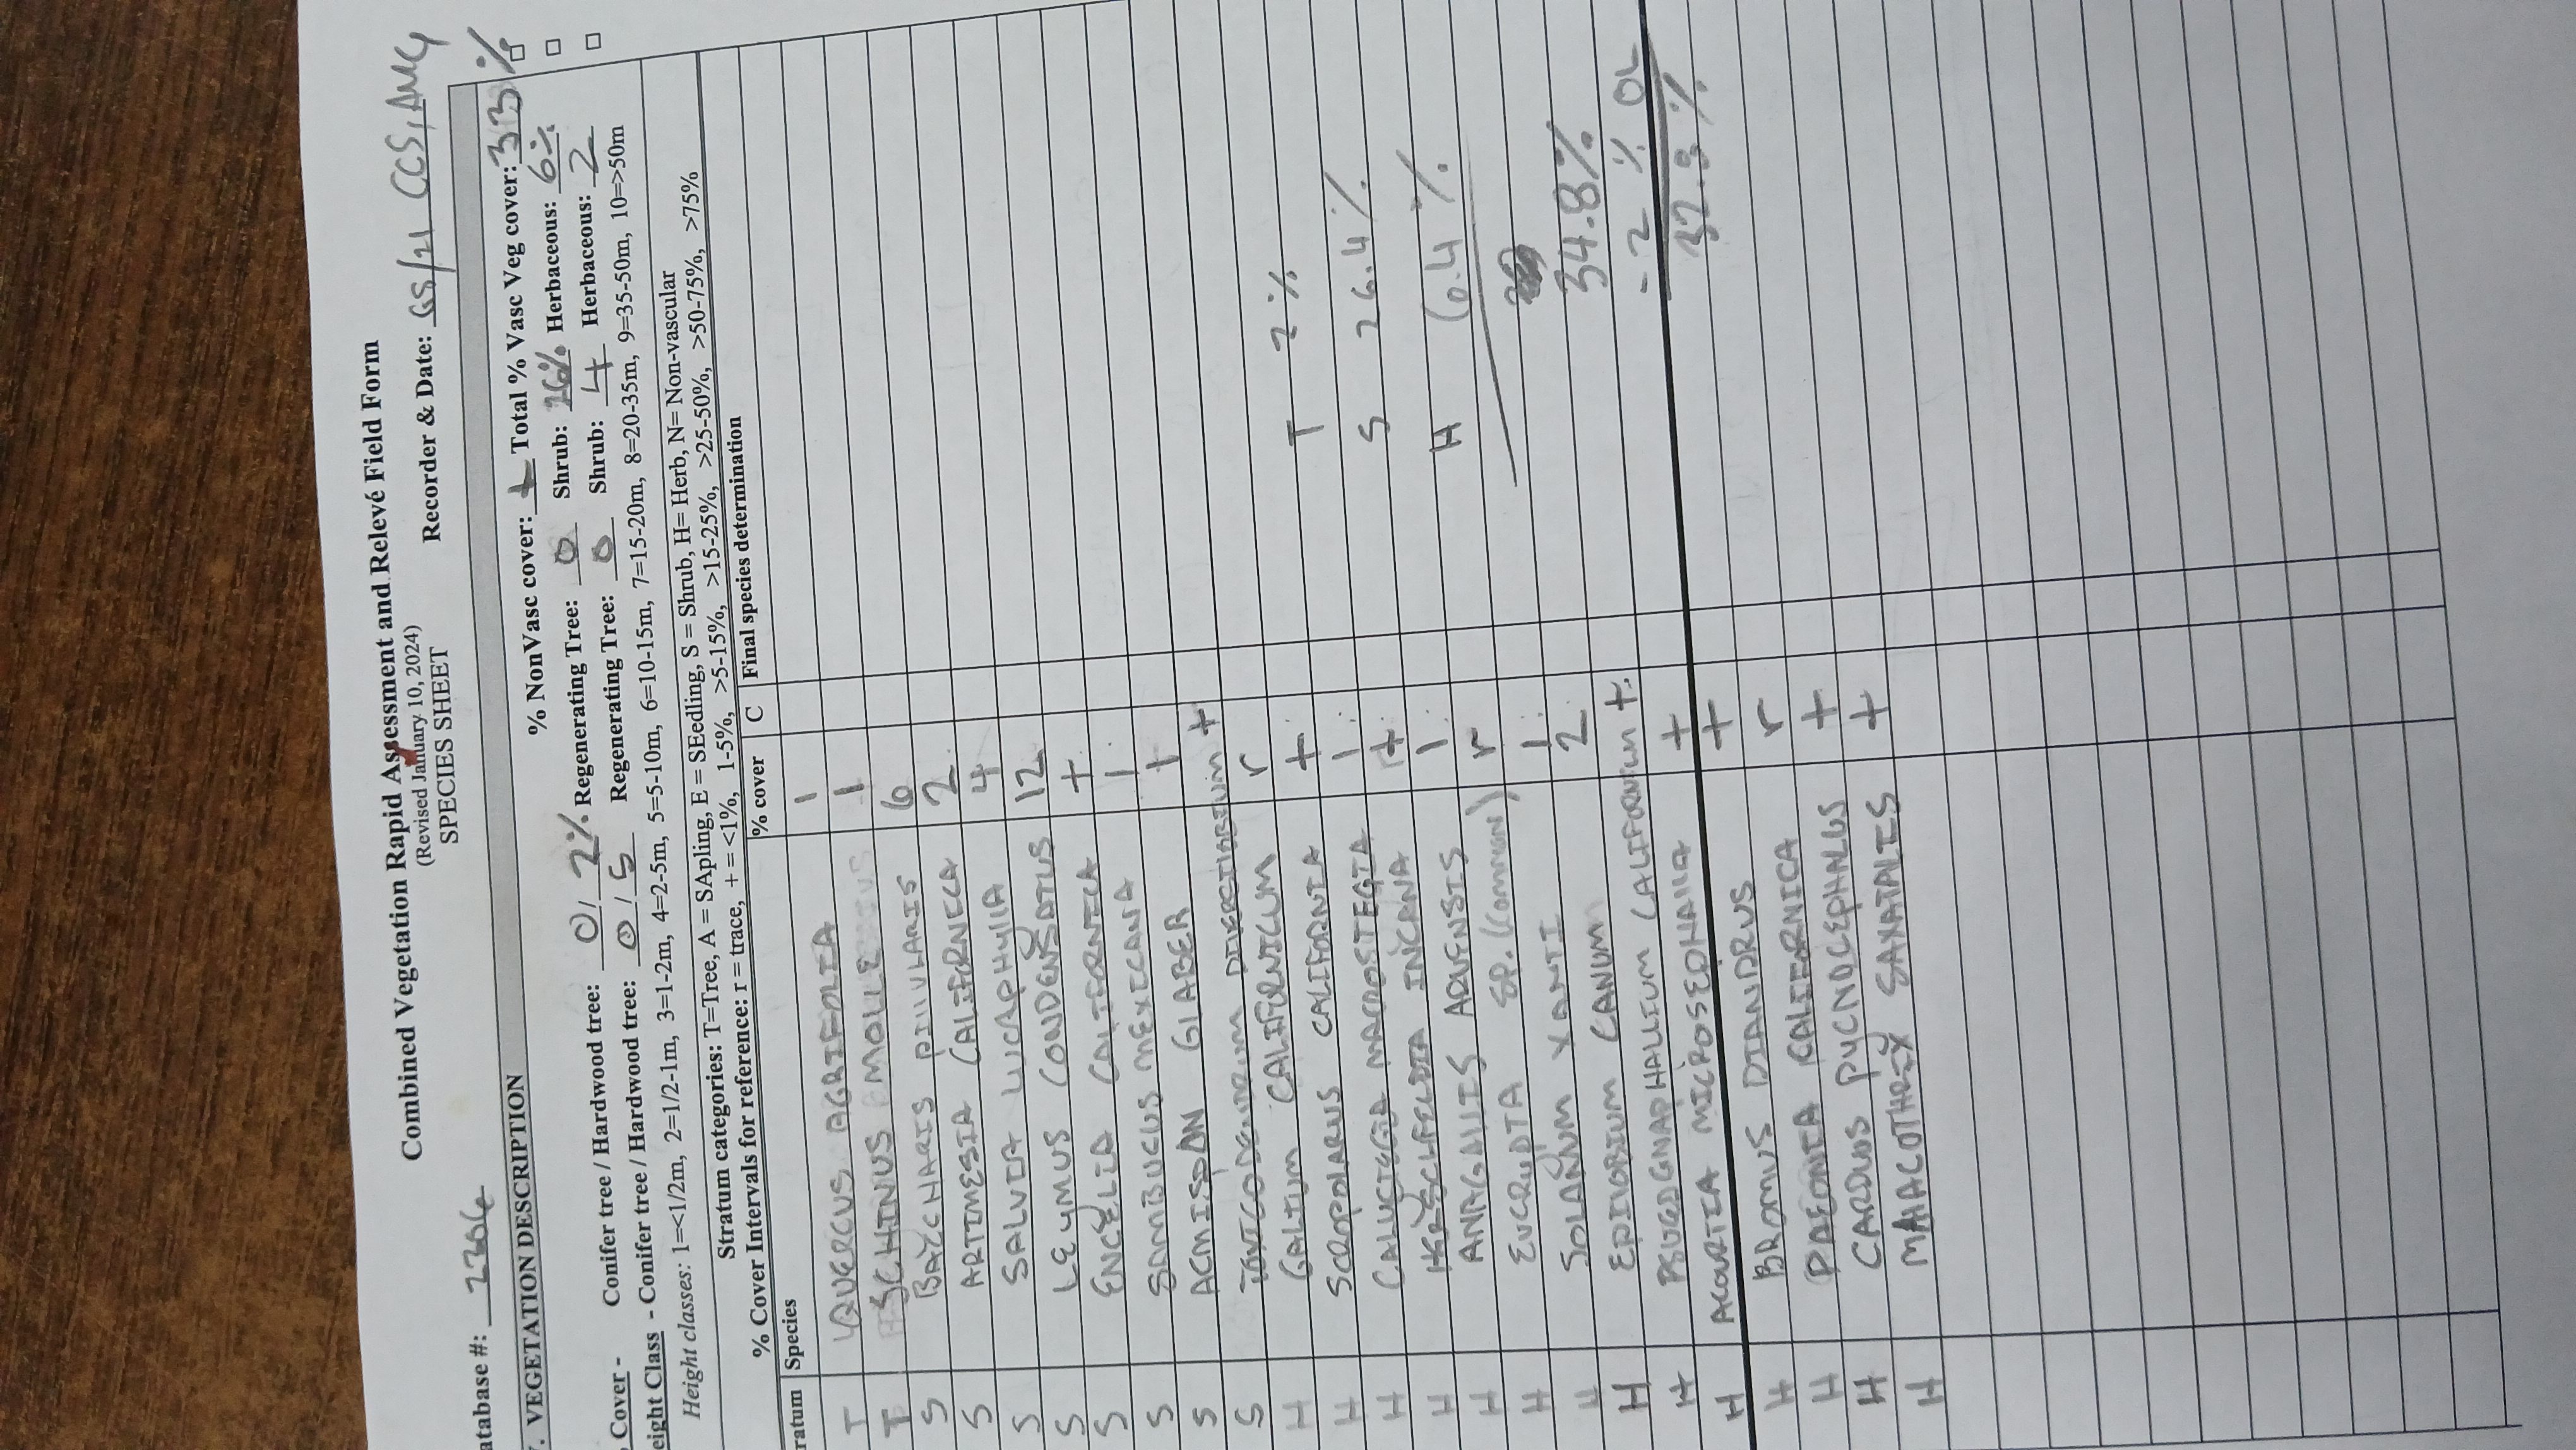 Combined Vegetation Rapid Assessment and Relevé Field Form
(Revised January 10, 2024)
SPECIES SHEET
atabase #: 2304 Recorder & Date: CCS, AMG
. VEGETATION DESCRIPTION
% NonVasc cover: Total % Vasc Veg cover: 33%
Cover - Conifer tree / Hardwood tree: 0 / 2% Regenerating Tree: 0 Shrub: 26% Herbaceous: 6%
eight Class - Conifer tree / Hardwood tree: 0 / 5 Regenerating Tree: 0 Shrub: 4 Herbaceous: 2
Height classes: 1=<1/2m, 2=1/2-1m, 3=1-2m, 4=2-5m, 5=5-10m, 6=10-15m, 7=15-20m, 8=20-35m, 9=35-50m, 10=>50m
Stratum categories: T=Tree, A = SApling, E = SEedling, S = Shrub, H= Herb, N= Non-vascular
% Cover Intervals for reference: r = trace, + = <1%, 1-5%, >5-15%, >15-25%, >25-50%, >50-75%, >75%
ratum Species % cover C Final species determination
T QUERCUS AGRIFOLIA 1
T SCHINUS MOLLE 1
S BACCHARIS PILLULARIS 6
S ARTIMESIA CALIFORNICA 2
S SALVIA LUCAPHYLLA 4
S LEYMUS CONDENSATUS 12
S ENCELIA CALIFORNICA +
S SAMBUCUS MEXICANA 1
S ACMISPON GLABER +
S TOXICODENDRUM DIVERSILOBIUM +
H GALIUM CALIFORNICUM r
H SCROPOLARUS CALIFORNIA + T 2%
H CALYSTEGIA MACROSTEGIA 1 S 26.4%
H HERSCHFELDIA INCANA +
H ANAGALLIS ARVENSIS 1 H 6.4%
H EUCRYPTA SP. (COMMON) r
H SOLANUM XANTI 1
H EPILOBIUM CANUM 2 34.8%
H PSUEDGNAPHALLIUM CALIFORNIUM + -2% OL
H ACOURTIA MICROSEPHALIA + 32.8%
H BROMUS DIANDRUS +
H PAEONIA CALIFORNICA r
H CARDUUS PYCNOCEPHALUS +
H MALACOTHRIX SAXATALIS +